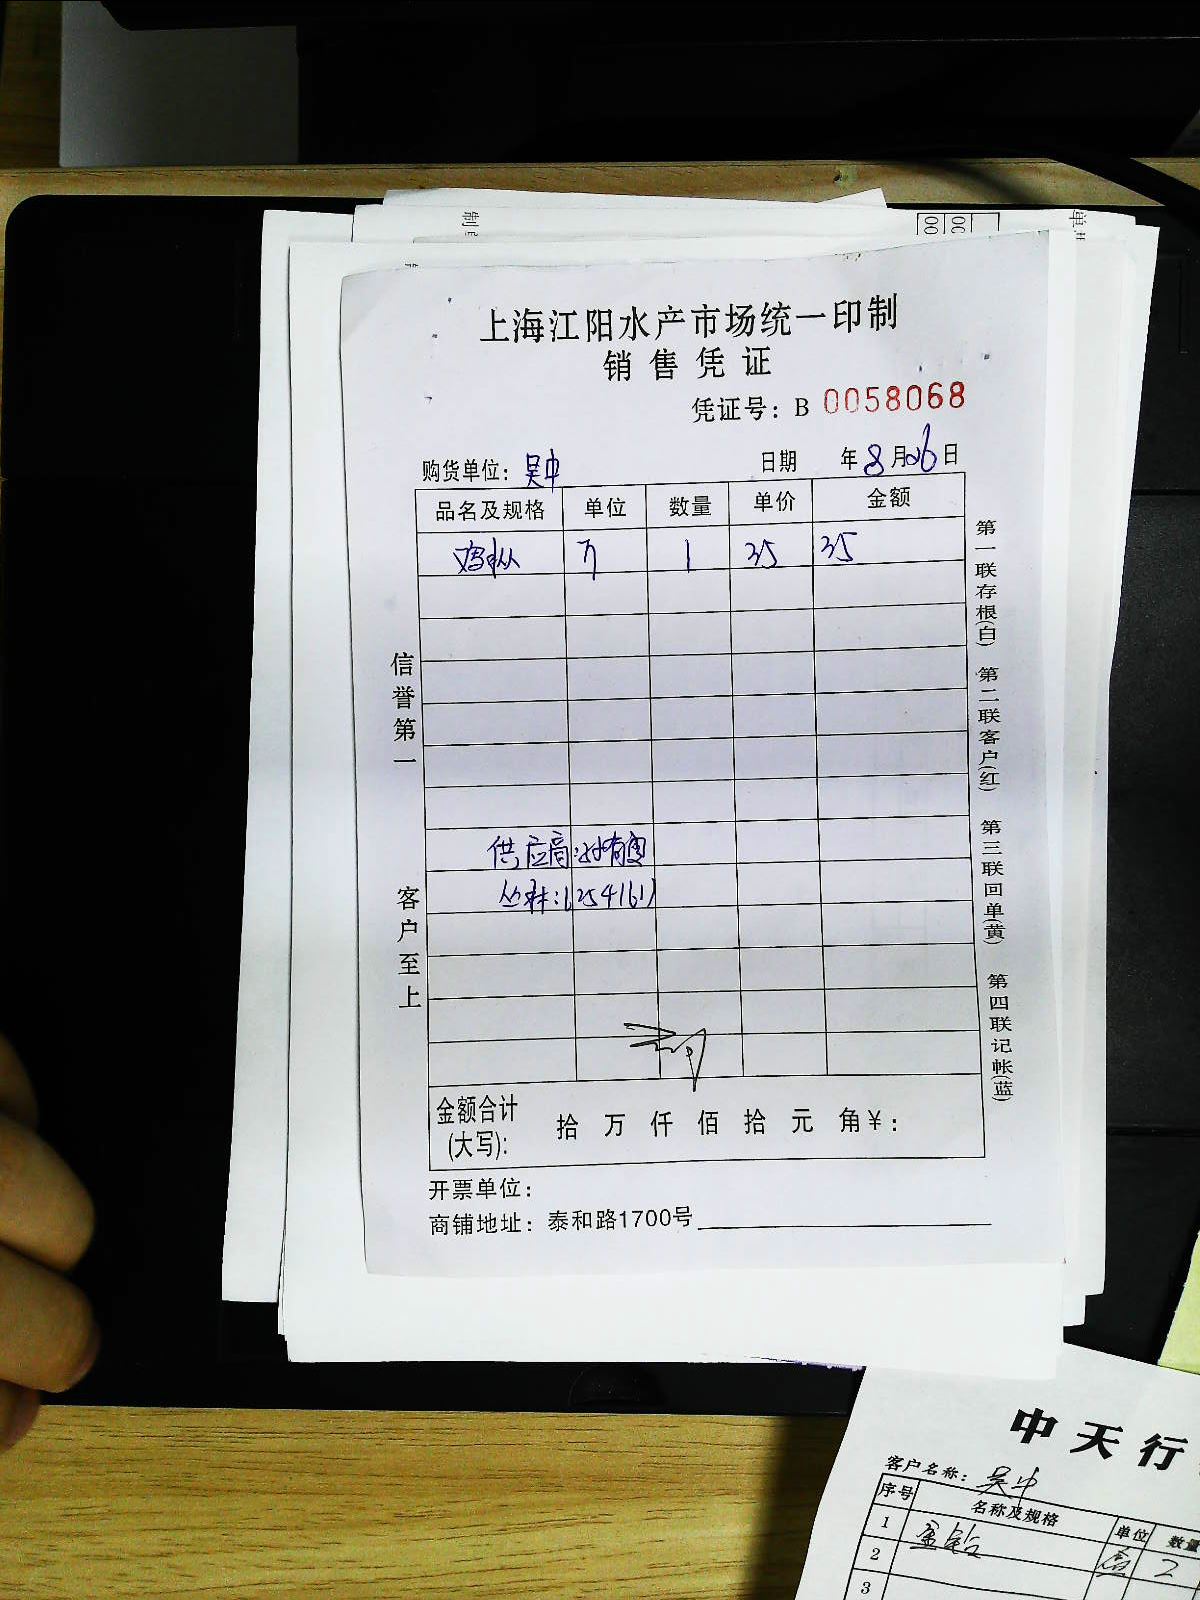 上海江阳水产市场统一印制
销售凭证
凭证号：B 0058068
购货单位：吴中 日期 年8月26日
品名及规格 单位 数量 单价 金额
1 35 35
供应商：
信誉第一 客户至上
第一联存根(白) 第二联客户(红) 第三联回单(黄) 第四联记帐(蓝)
金额合计(大写)： 拾 万 仟 佰 拾 元 角 ¥：
开票单位：
商铺地址：泰和路1700号
中天行
客户名称：吴中
序号 名称及规格 单位 数量
1 金钻 2
2
3